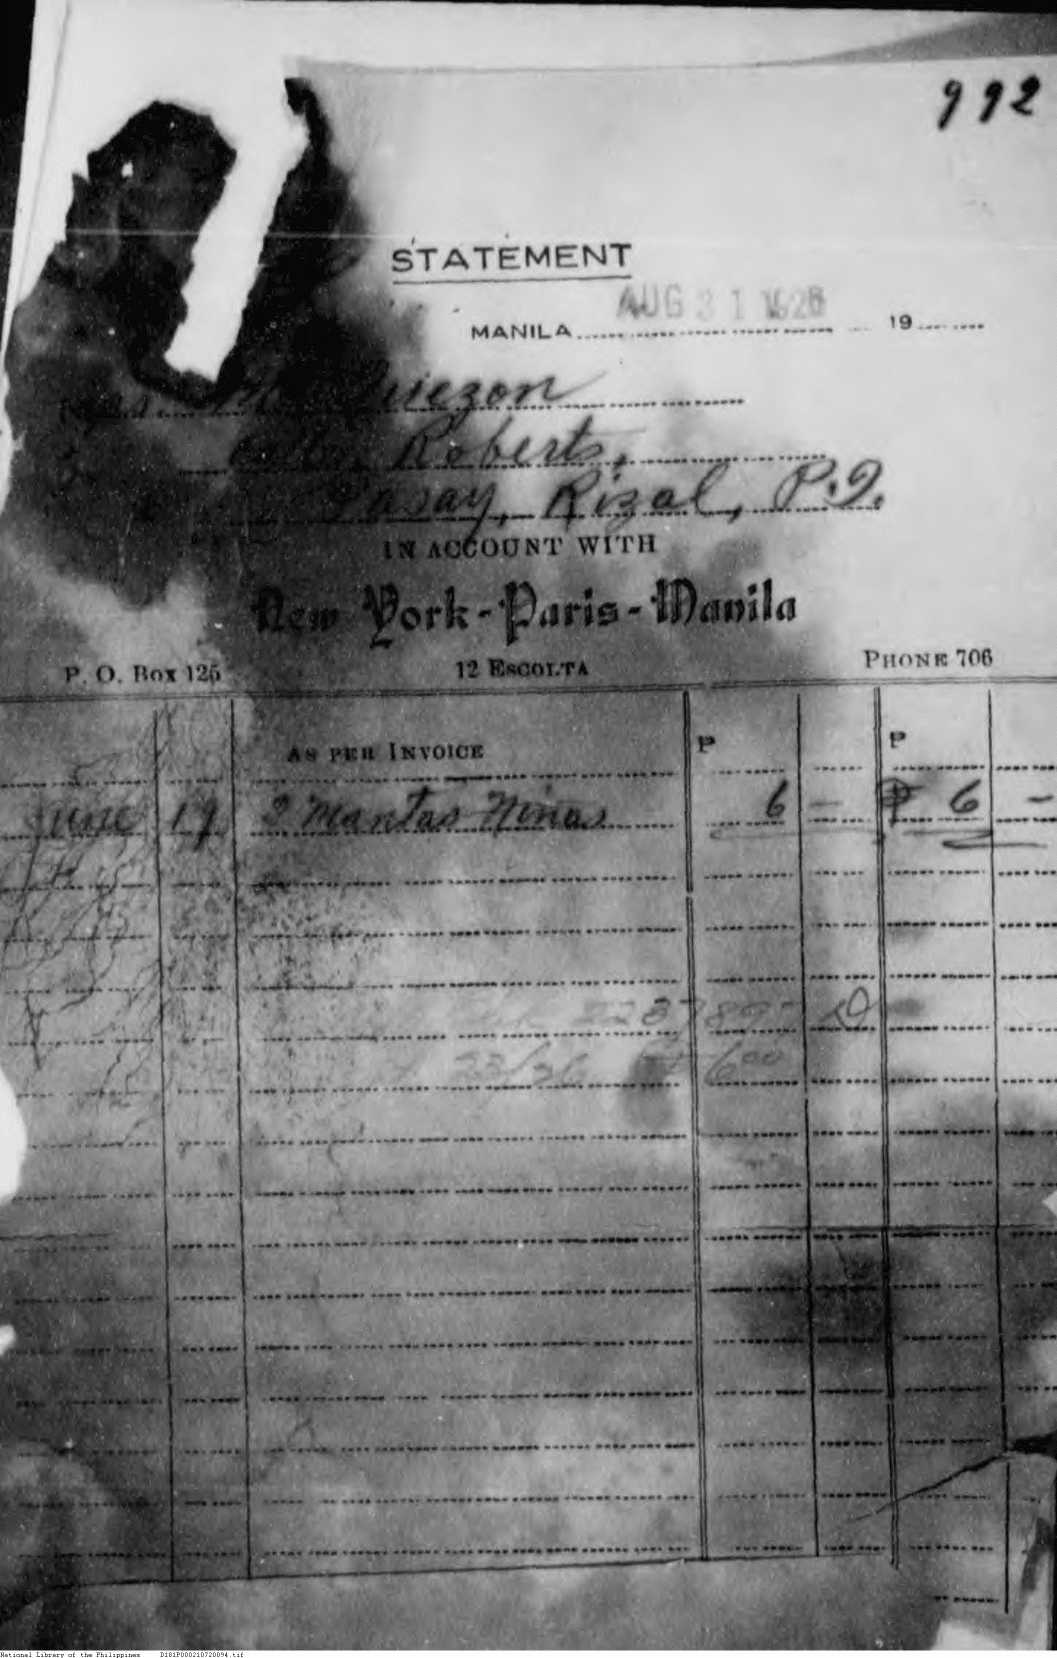 992
STATEMENT
MANILA AUG 31 1926 19
Quezon
Calle Roberts,
Pasay, Rizal, P.I.
IN ACCOUNT WITH
New York-Paris-Manila
P. O. Box 125 12 ESCOLTA PHONE 706
AS PER INVOICE P P
June 19 2 Mantas Niñas 6 — ₱ 6 —
600
National Library of the Philippines D181P000210720094.tif